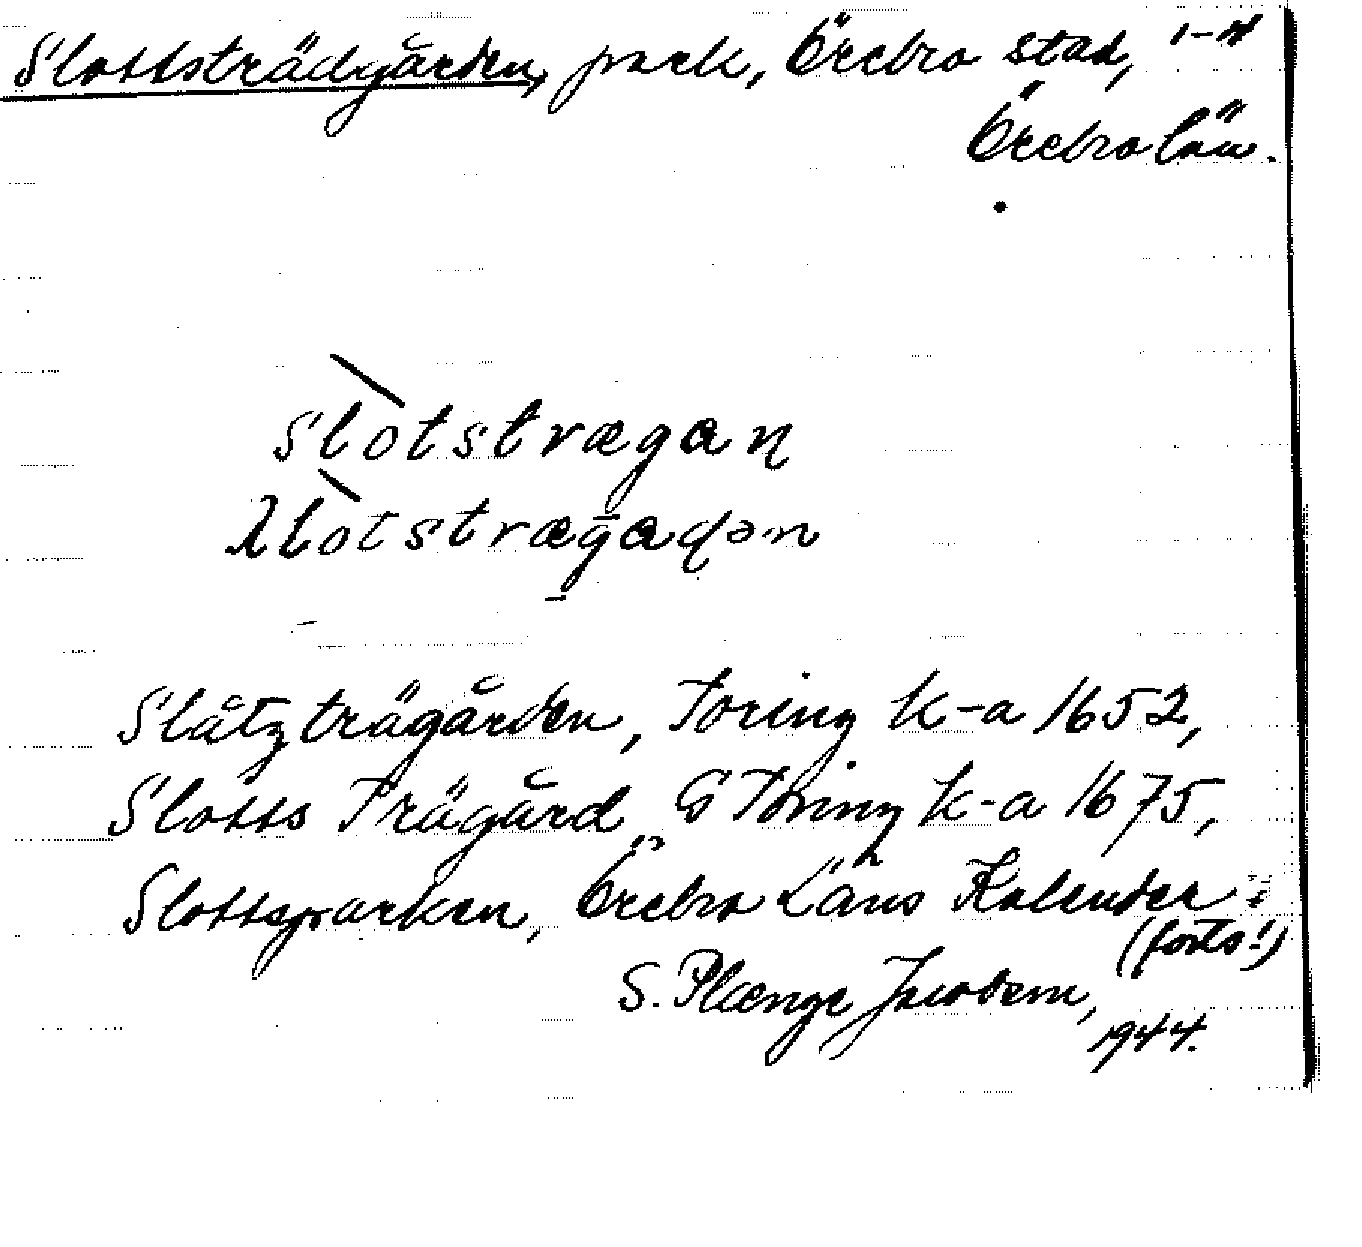 Slottsträdgården, park, Örebro stad, 1-4
Örebro län.
slòtstrægaṇ
slòtstrægadən
Slåtzträgården, Toring k-a 1652,
Slotts Trägård, G Toring k-a 1675,
Slottsparken, Örebro Läns Kalender
(forts!)
S. Plænge Jacobson,
1944.